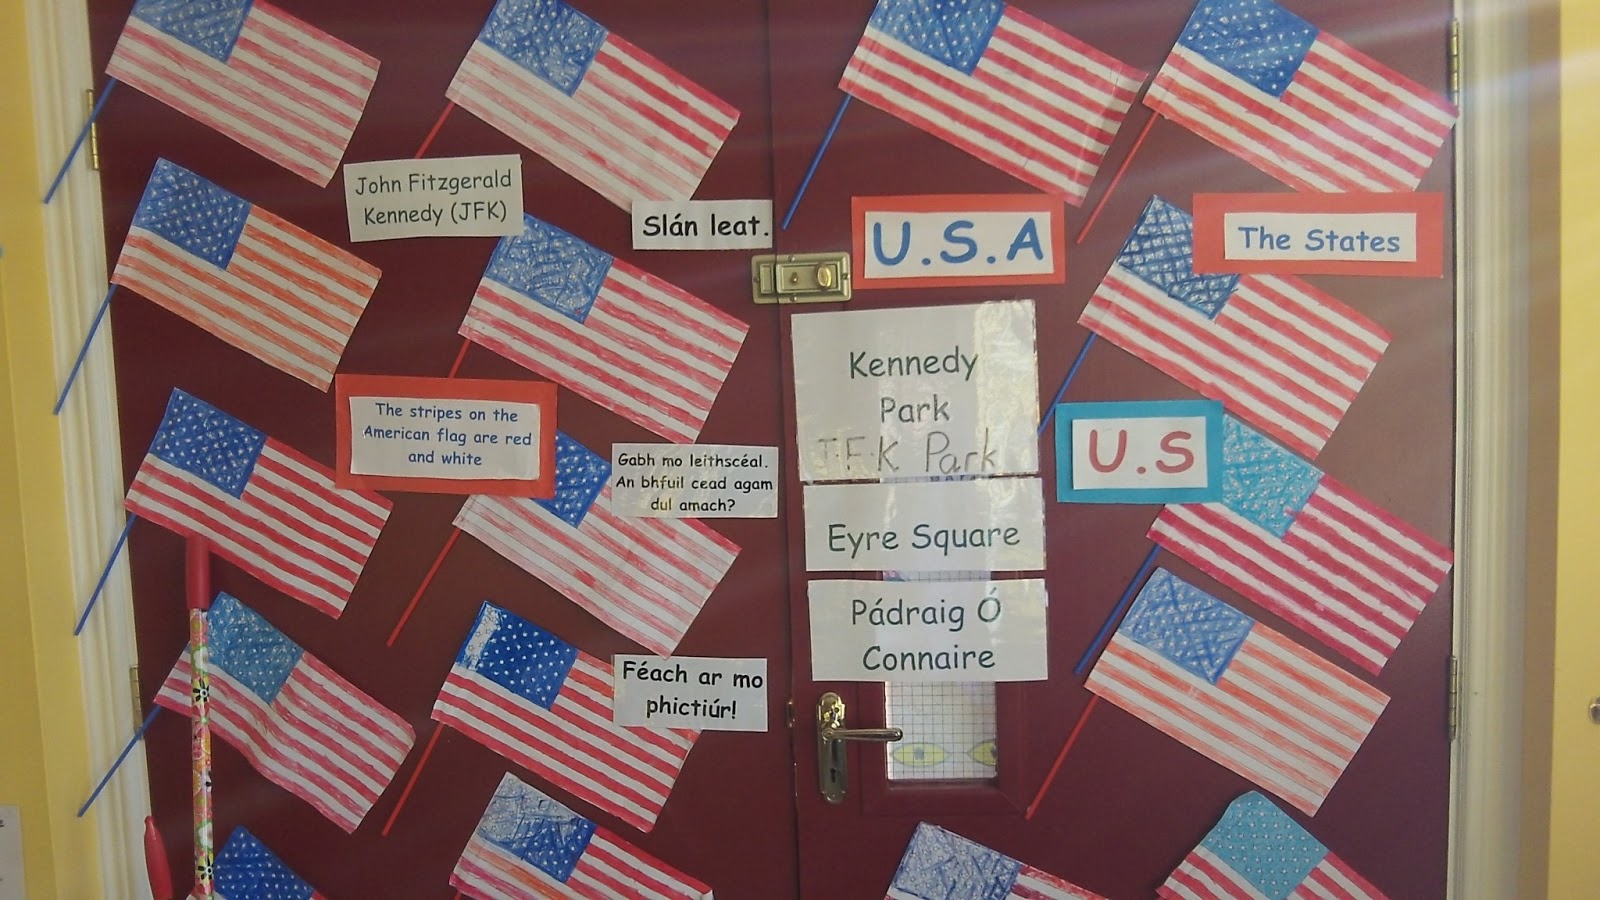 John Fitzgerald
Kennedy (JFK)
Slán leat.
U.S.A
The States
Kennedy
Park
J.F.K Park
The stripes on the
American flag are red
and white
U.S
Gabh mo leithscéal.
An bhfuil cead agam
dul amach?
Eyre Square
Pádraig Ó
Connaire
Féach ar mo
phictiúr!